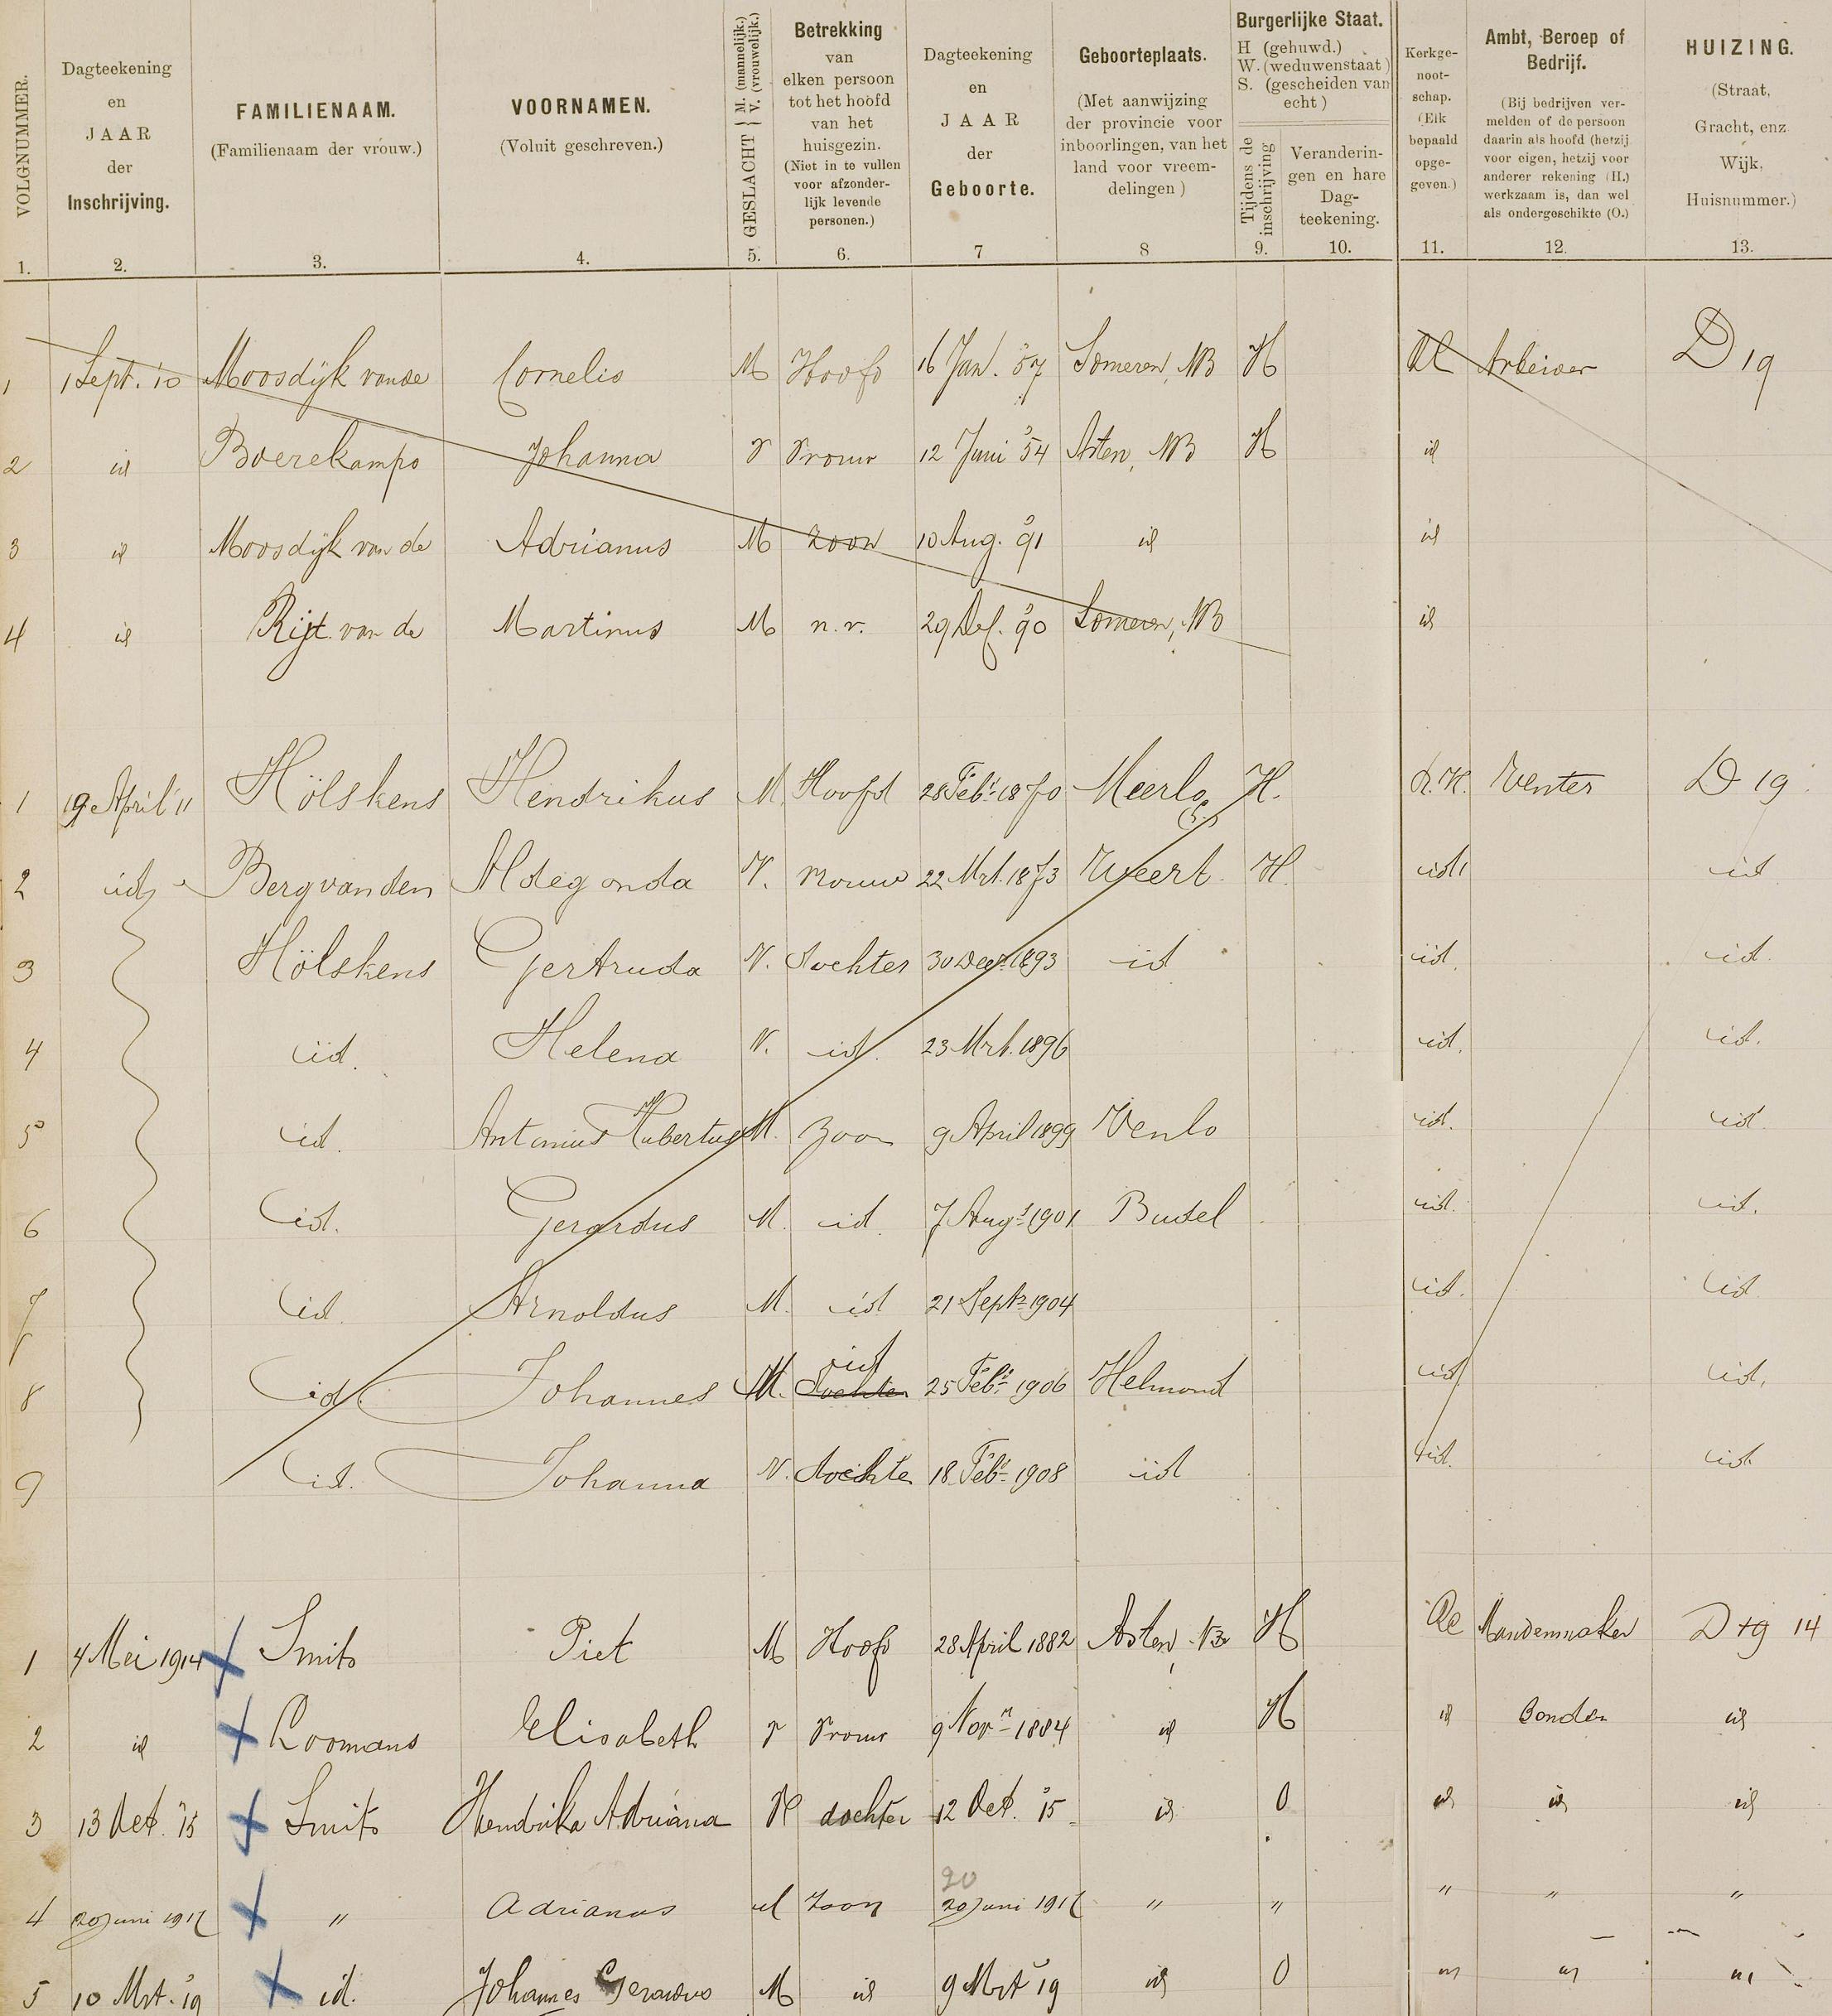 VOLGNUMMER.
1.
Dagteekening
en
JAAR
der
Inschrijving.
2.
FAMILIENAAM.
(Familienaam der vrouw.)
3.
VOORNAMEN.
(Voluit geschreven.)
4.
GESLACHT { M. (mannelijk.) V. (vrouwelijk.)
5.
Betrekking
van
elken persoon
tot het hoofd
van het
huisgezin.
(Niet in te vullen
voor afzonder-
lijk levende
personen.)
6.
Dagteekening
en
JAAR
der
Geboorte.
7
Geboorteplaats.
(Met aanwijzing
der provincie voor
inboorlingen, van het
land voor vreem-
delingen)
8
Burgerlijke Staat.
H (gehuwd.)
W. (weduwenstaat)
S. (gescheiden van
echt)
Tijdens de
inschrijving
9.
Veranderin-
gen en hare
Dag-
teekening.
10.
Kerkge-
noot-
schap.
(Elk
bepaald
opge-
geven.)
11.
Ambt, Beroep of
Bedrijf.
(Bij bedrijven ver-
melden of de persoon
daarin als hoofd (hetzij
voor eigen, hetzij voor
anderer rekening (H.)
werkzaam is, dan wel
als ondergeschikte (O.)
12.
HUIZING.
(Straat,
Gracht, enz.
Wijk,
Huisnummer.)
13.
1 1 Sept. '10 Moosdijk van de Cornelis M Hoofd 16 Jan. '57 Someren, NB H Arbeider D 19
2 id Boerekamps Johanna V Vrouw 12 Juni '54 Asten, NB H id
3 id Moosdijk van de Adrianus M Zoon 10 Aug. '91 id id
4 id Rijt van de Martinus M n.v. 29 '90 Someren, NB id
1 19 April '11 Hölskens Hendrikus M. Hoofd 28 Febr. 1870 Meerlo H. R.K. Venter D 19
2 id Berg van den Aldegonda V. vrouw 22 Mrt. 1873 Weert H. id id
3 Hölskens Gertruda V. dochter 30 Decr. 1893 id id. id.
4 id. Helena V. id. 23 Mrt. 1896 id. id.
5 id. Antonius Hubertus M. Zoon 9 April 1899 Venlo id. id.
6 id. Gerardus M. id. 7 Augs. 1901 Budel id. id.
7 id. Arnoldus M. id 21 Septr. 1904 id. id
8 id. Johannes M. id dochter 25 Febr. 1906 Helmond id id.
9 id. Johanna V. dochter 18 Febr. 1908 id id. id.
1 4 Mei 1914 Smits Piet M Hoofd 28 April 1882 Asten, NB H Mandenmaker D 19 14
2 id Koomans Elisabeth V Vrouw 9 Novr. 1884 id H id id
3 13 Oct. '15 Smits Hendrika Adriana V dochter 12 Oct. '15 id O id id id
4 20 Juni 1917 " Adrianus M Zoon 20 20 Juni 1917 " " " " "
5 10 Mrt. '19 id. Johannes Gerardus M id 9 Mrt '19 id O " " "